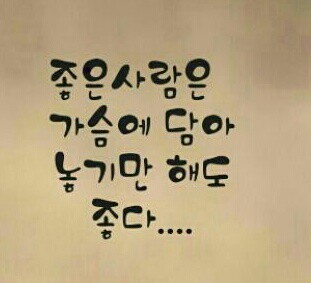 좋은사람은
가슴에 담아
놓기만 해도
좋다....